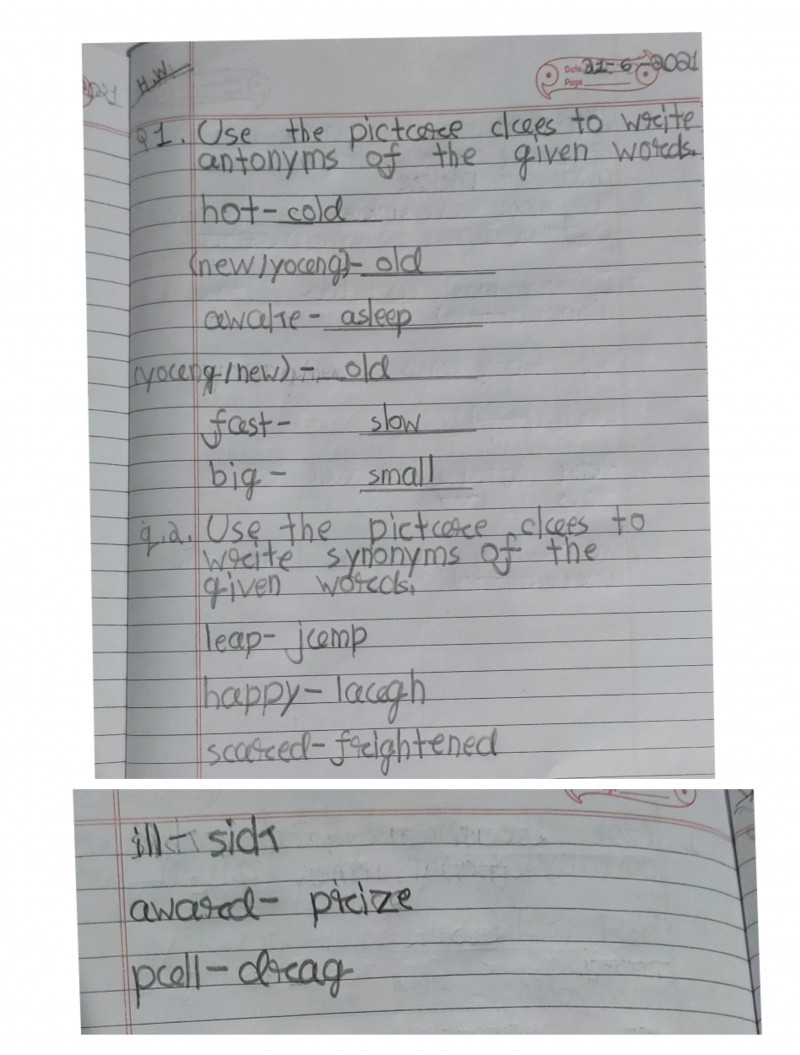 H.W.
Date 21-6-2021
Page
Q1. Use the picture clues to write
antonyms of the given words.
hot- cold
(new/young)- old
awake - asleep
(young/new) - old
fast- slow
big - small
q.2. Use the picture clues to
write synonyms of the
given words.
leap- jump
happy- laugh
scared- frightened
ill- sick
award- prize
pull- drag